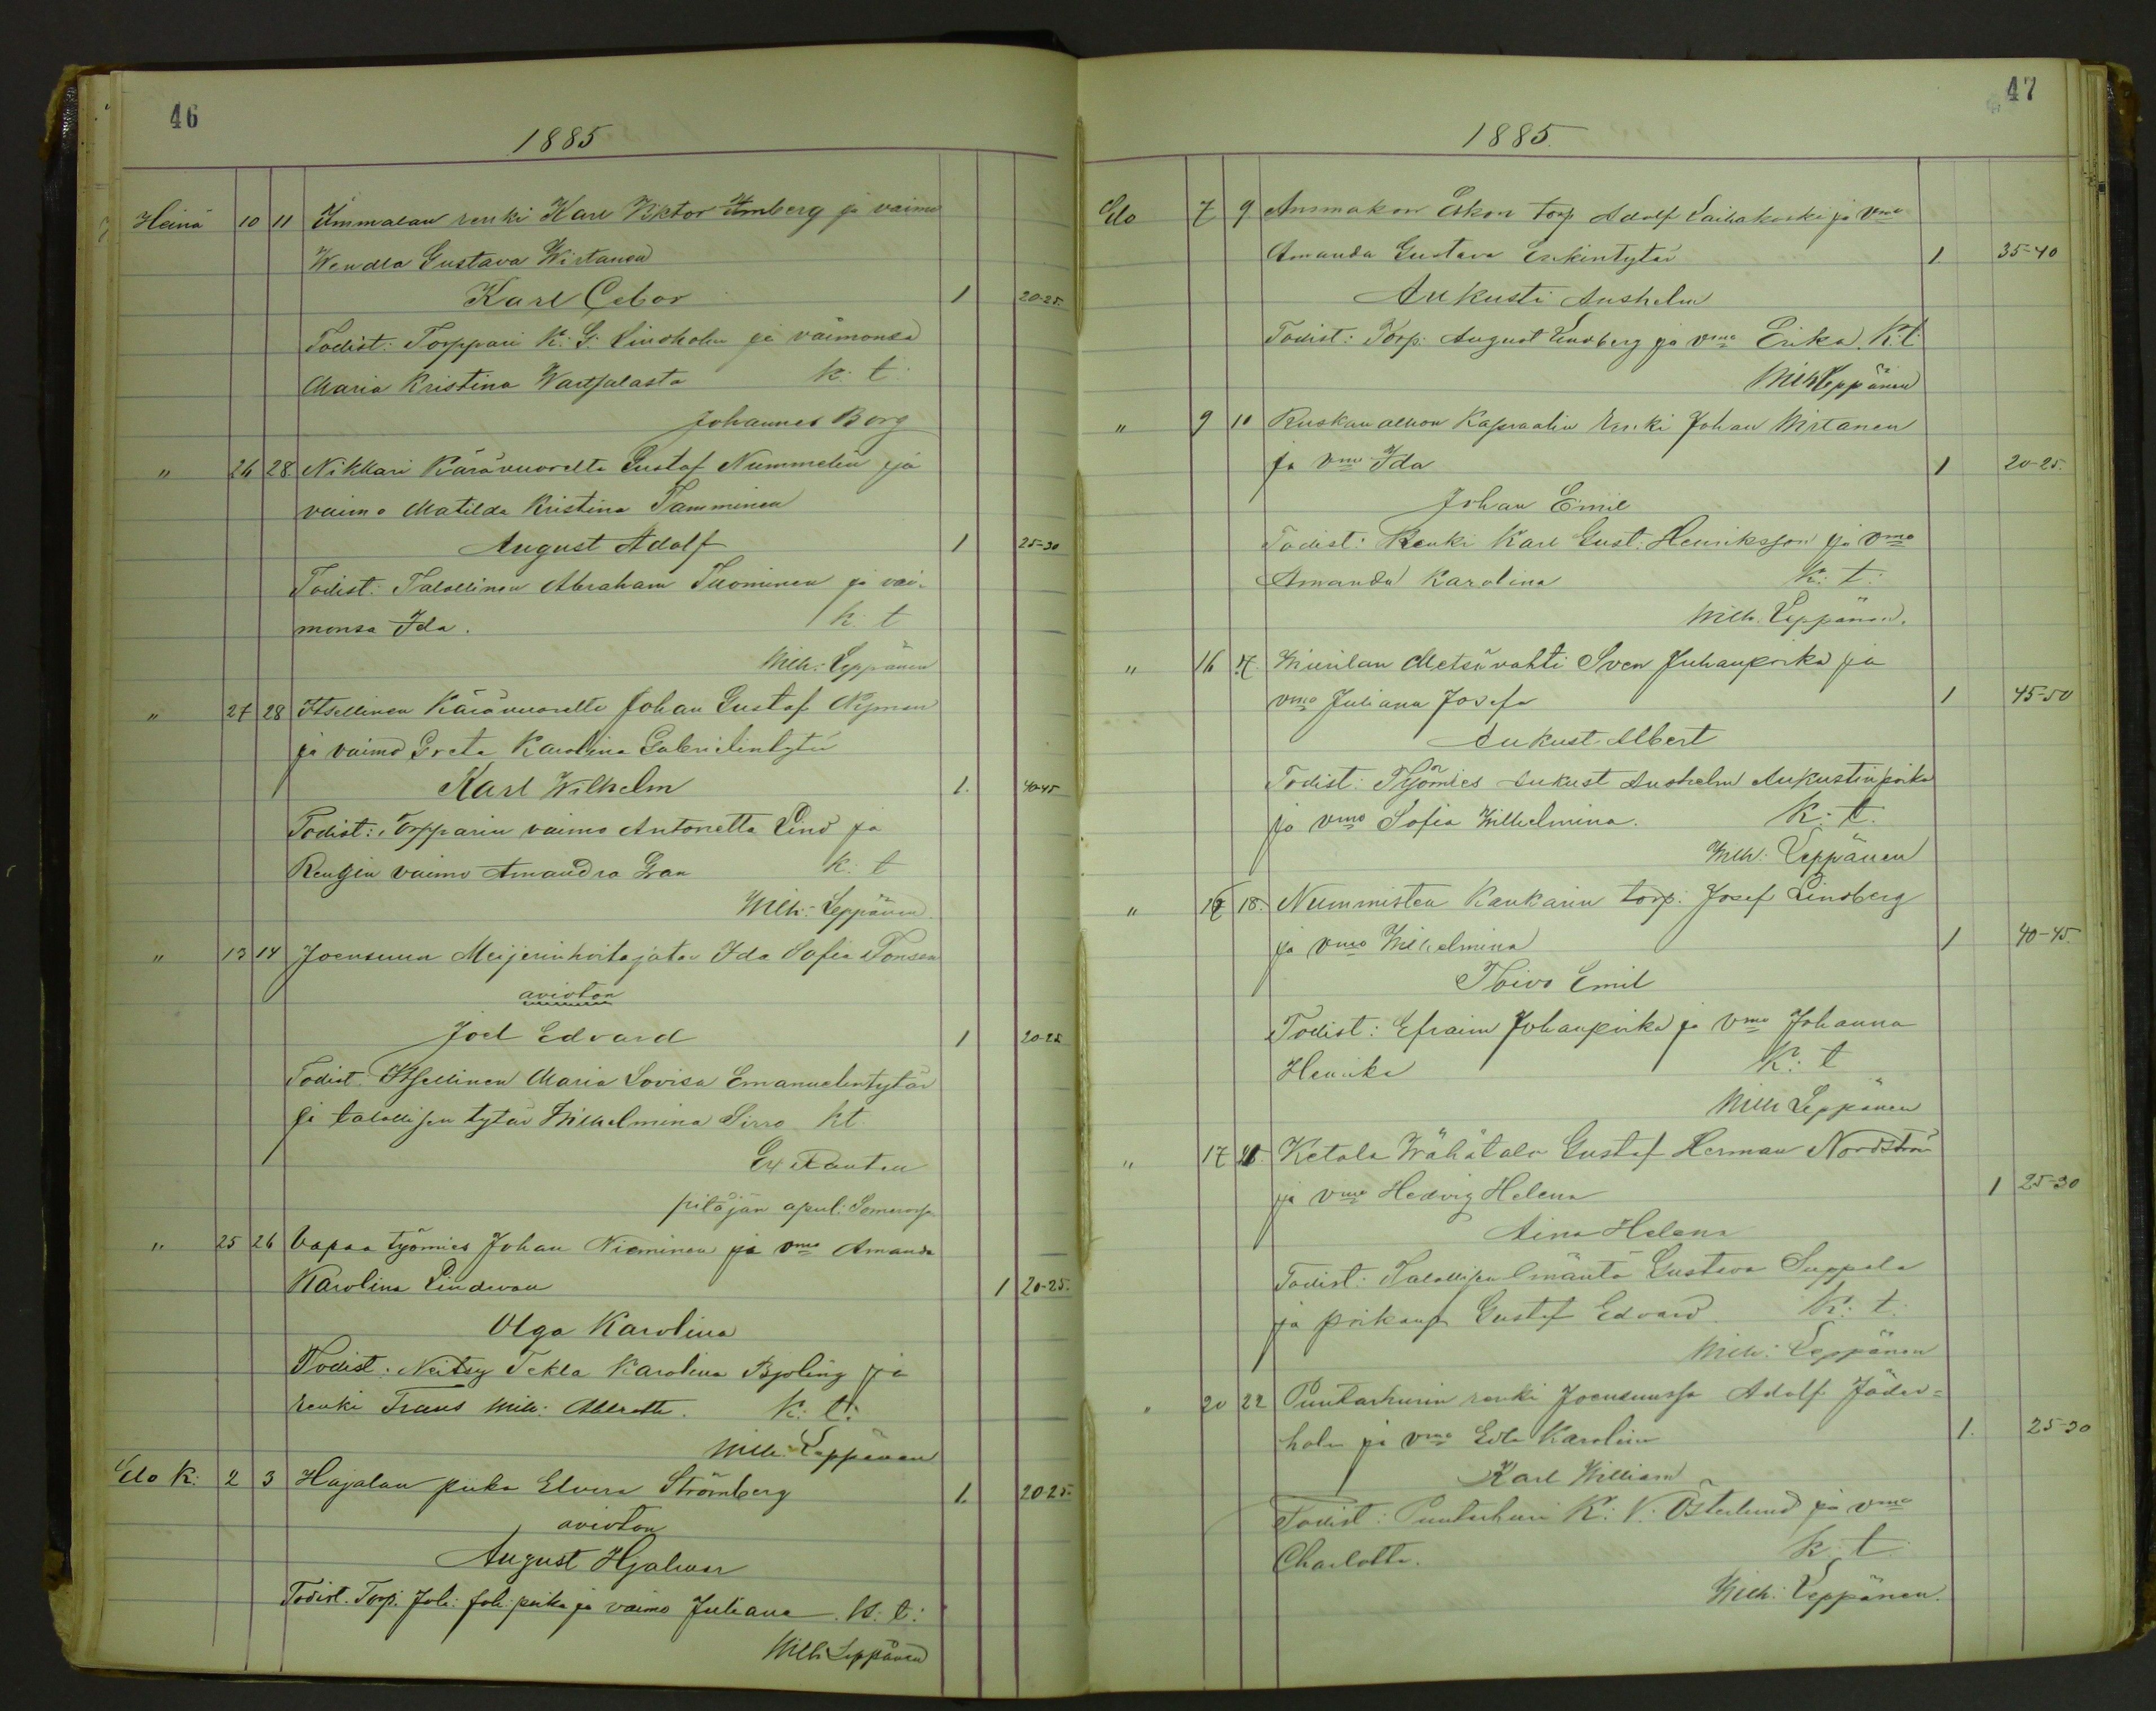 46
1885
Heinä 10 11 Ummalan renki Karl Viktor Umberg ja vaimo
Wendla Gustava Wirtanen
Karl Oskar 1 20-25.
Todist: Torppari K: G: Lindholm ja vaimonsa
Maria Kristina Wartsalasta k: t:
Johannes Borg
" 26 28. Nikkari Kärävuorelta Gustaf Nummelin ja
vaimo Matilda Kristina Tamminen
August Adolf 1 25-30
Todist: Talollinen Abraham Tuominen ja vai-
monsa Ida. k: t
Wilh: Leppänen
" 27 28 Itsellinen Kärävuorelta Johan Gustaf Nyman
ja vaimo Greta Karolina Gabrielintytär
Karl Wilhelm 1. 40-45
Todist: Torpparin vaimo Antonetta Lind ja
Rengin vaimo Amandra Gran k: t
Wilh: Leppänen.
" 13 14 Joensuun Meijerinhoitajatar Ida Sofia Tonsen
avioton
Joel Edvard 1 20-25
Todist: Itsellinen Maria Lovisa Emanuelintytär
ja talollisen tytär Wilhelmina Sirro kt.
pitäjän apul:
" 25 26 Vapaa työmies Johan Nieminen ja vmo Amanda
Karolina Lindevan 1 20-25.
Olga Karolina
Todist: Neitsy Tekla Karolina Björling ja
renki Frans Wilh: Ahlroth. k: t:
Wilh: Leppänen
Elo k: 2 3 Hajalan piika Elvira Strömberg 1. 20-25-
avioton
August Hjalmar
Todist. Torp. Joh: Joh: poika ja vaimo Juliana k: t:
Wilh Leppänen
47
1885.
Elo 7 9 Ammakon Eskon torp Adolf Lailakoski ja vmo
Amanda Gustava Erikintytär 1. 35-40
Aukusti Anshelm
Todist: Torp: August Lindberg ja vmo Erika. K: t:
Wilh Leppänen
" 9 10 Ruskan alhon Kapraalin renki Johan Wirtanen
ja vmo Ida 1 20-25.
Johan Emil
Todist: Renki Karl Gust: Henriksson ja vmo
Amanda Karolina k: t:
Wilh. Leppänen.
" 16 17. Wiurilan Metsävahti Sven Juhanpoika ja
vmo Juliana Josefa 1 45-50
Aukust Albert
Todist: Työmies Aukust Anshelm Aukustinpoika
ja vmo Sofia Wilhelmina. k: t.
Wilh: Leppänen
" 17 18. Nummisten Kankarin torp: Josef Lindberg
ja vmo Wilhelmina 1 40-45.
Toivo Emil
Todist: Efraim Johanpoika ja vmo Johanna
Henrika k: t
Wilh Leppänen
" 17 Ketala Wähätalo Gustaf Herman Nordström
ja vmo Hedvig Helena 1 25-30
Aina Helena
Todist: Talollisen emäntä Gustava Suppala
ja poikansa Gustaf Edvard. k: t.
Wilh: Leppänen
" 20 22 Puutarhurin renki Joensuussa Adolf Jäder=
holm ja vmo Edla Karolina 1. 25-30
Karl William
Todist: Puutarhuri K: V. Österlund ja vmo
Charlotta. k: t.
Wilh: Leppänen.